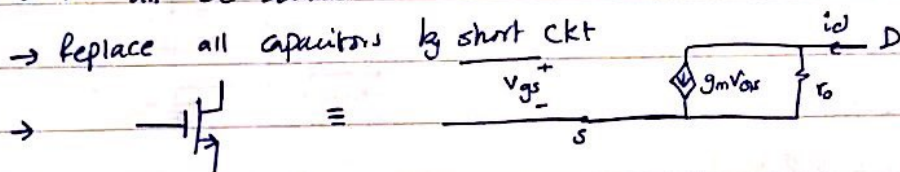 → Replace all capacitors by short ckt
id D
vgs + -
gmvgs
ro
→ ≡
S